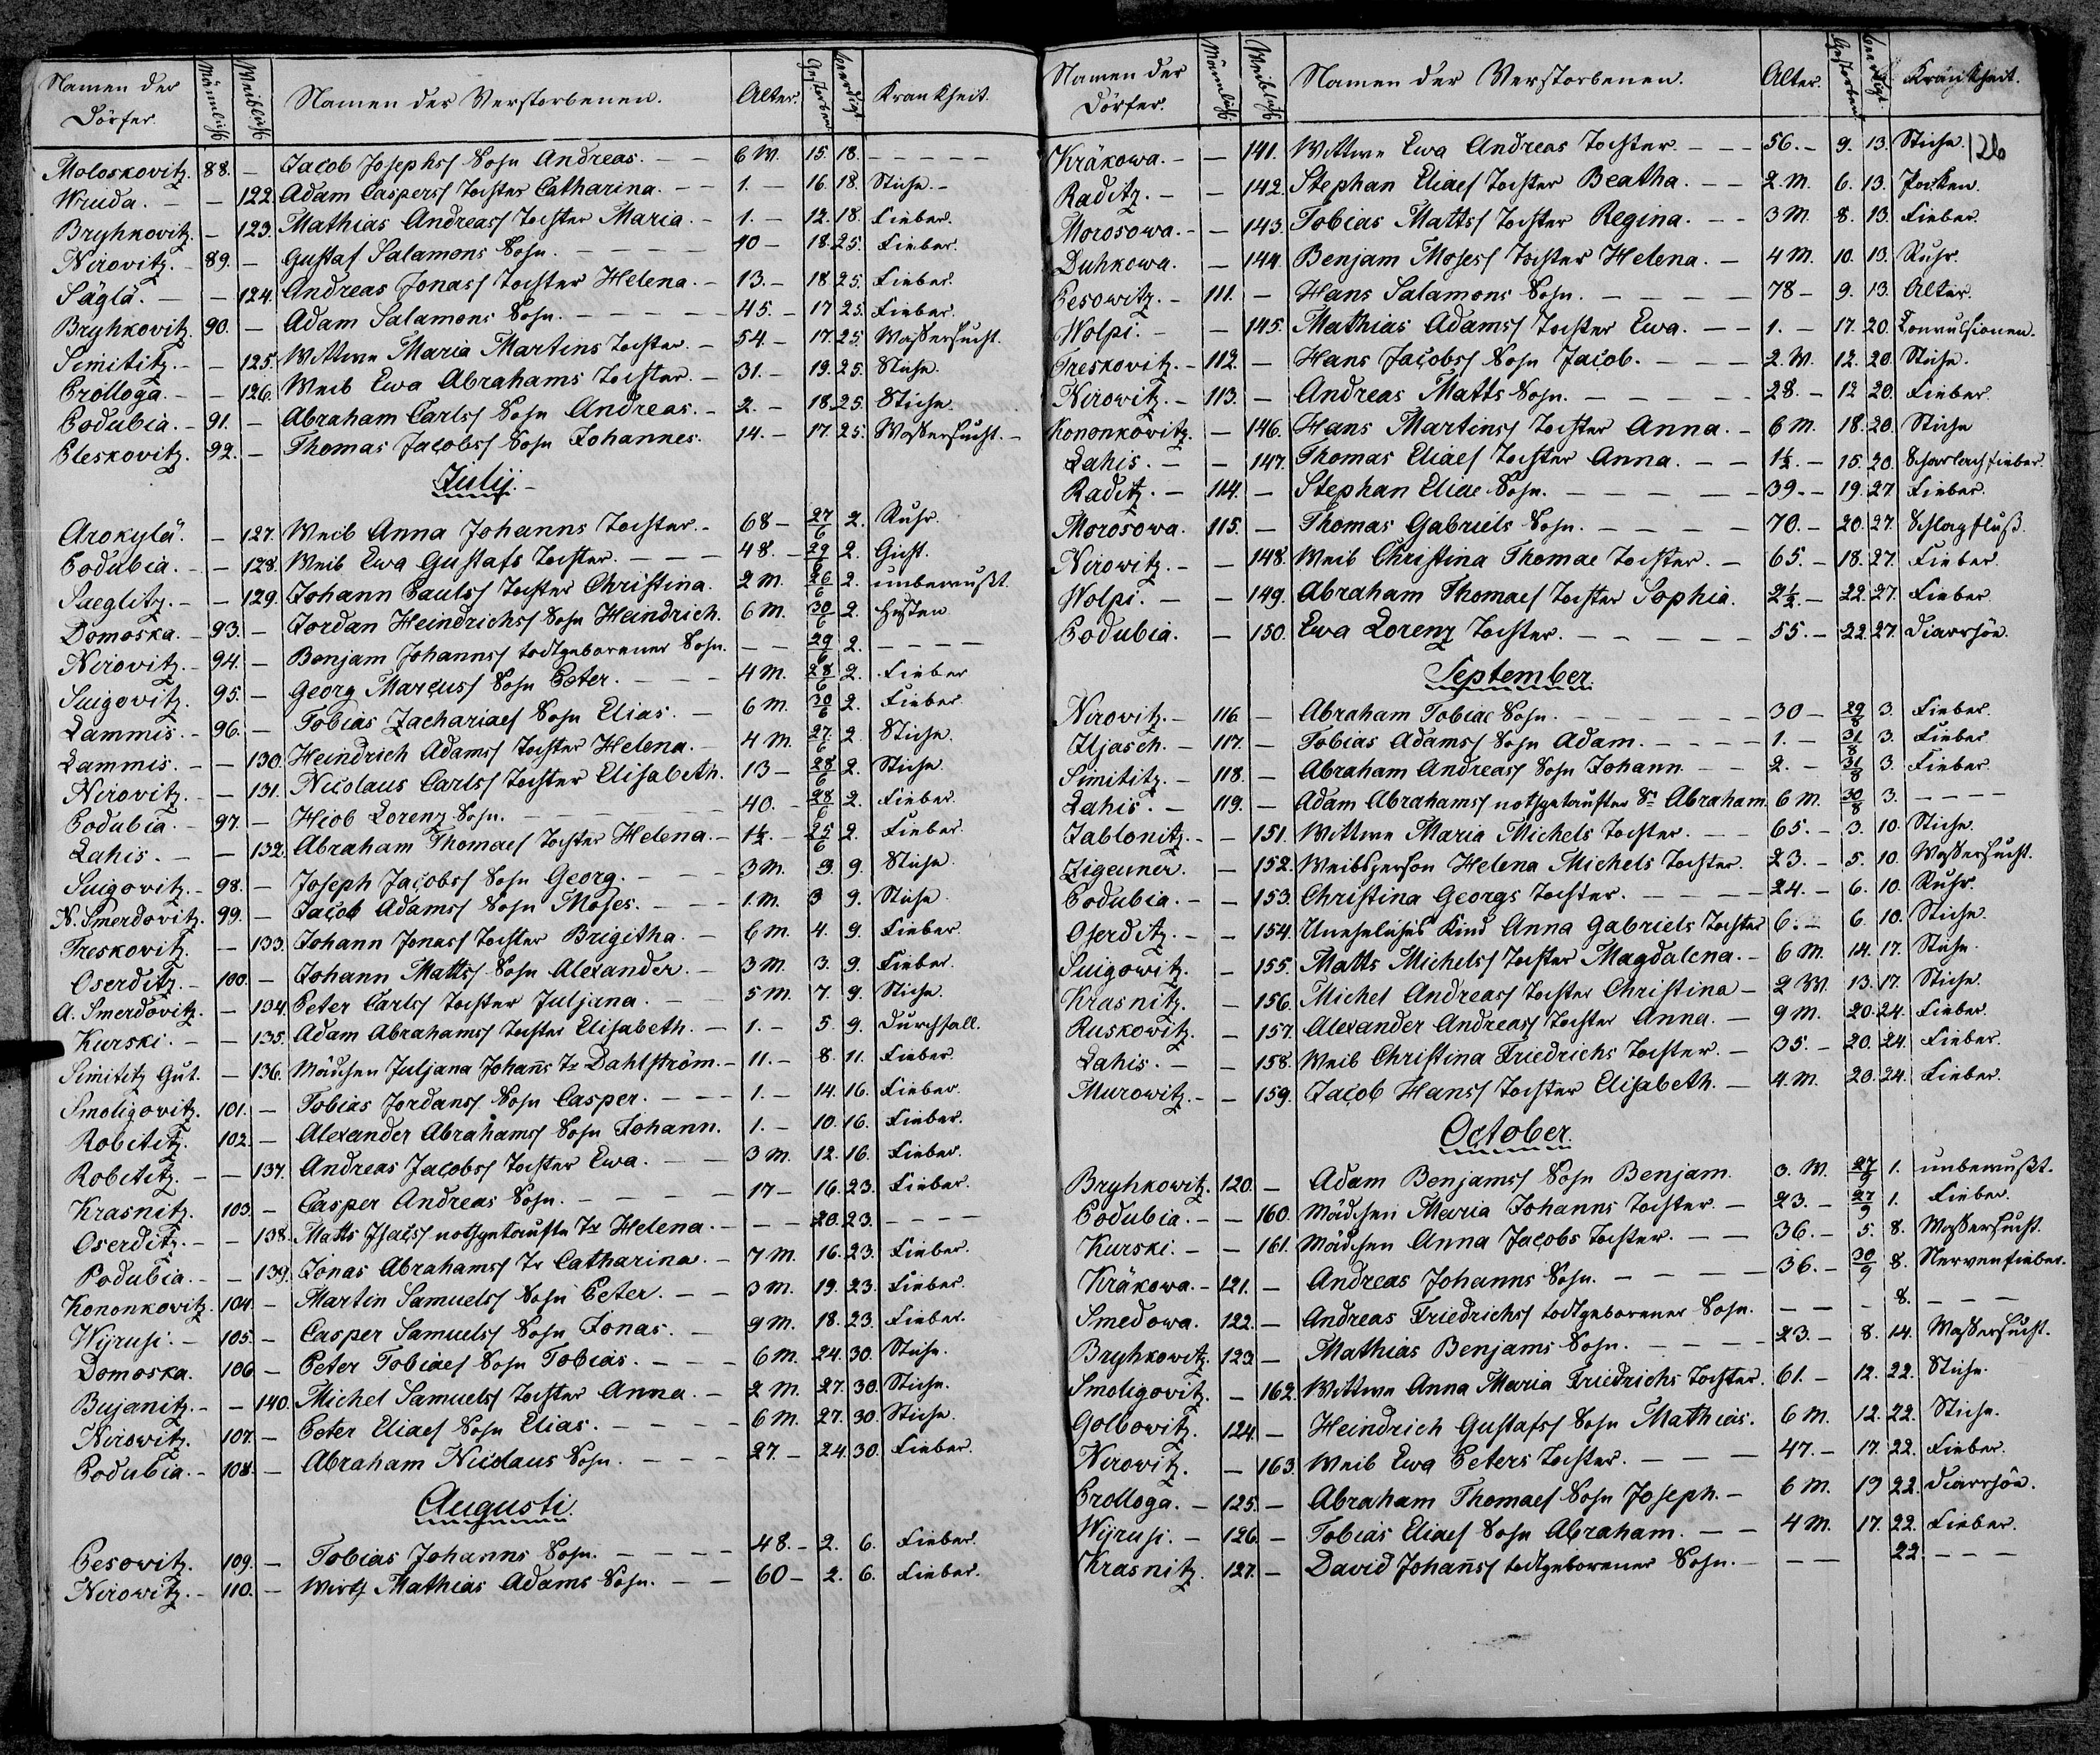 Namen der Dörfer. Männlich Weiblich Namen der Verstorbenen. Alter. Gestorben beerdigt Krankheit.
Moloskovitz. 88. – Jacob Josephs Sohn Andreas. – – 6 W. 15. 18. – – – – –
Wruda. – – 122. Adam Caspers Tochter Catharina. – – 1. – 16. 18. Stiche. –
Bryhkovitz. – 123. Mathias Andreas Tochter Maria. – 1. – 12. 18. Fieber.
Nirovitz. – 89. – Gustaf Salamons Sohn. – – – – 10 – 18. 25. Fieber.
Säglä. – – 124. Andreas Jonas Tochter Helena. – 13. – 18 25. Fieber.
Bryhkovitz. 90. – Adam Salamons Sohn. – – – – – 45. – 17 25. Fieber.
Simititz. – – 125. Wittwe Maria Martins Tochter. – 54. – 17. 25. Waßersucht.
Prologa. – – 126. Weib Ewa Abrahams Tochter. – 31. – 19. 25. Stiche.
Podubia. – 91. – Abraham Carls Sohn Andreas. – 2. – 18. 25. Stiche.
Pleskovitz. 92. – Thomas Jacobs Sohn Johannes. 14. – 17. 25. Waßersucht. –
Julij. –
Arokylä. – 127. Weib Anna Johanns Tochter. – 68 – 27/6 2. Ruhr.
Podubia. – – 128. Weib Ewa Gustafs Tochter. – – – 48. – 29/6 2. Gicht.
Saeglitz. – – 129. Johann Pauls Tochter Christina. 2 M. 26/6 2. unbewußt
Domoska. – 93. – Jordan Heindrichs Sohn Heindrich. 6 M. 30/6 2. Husten
Nirovitz. – 94. – Benjam Johanns todtgeborener Sohn. – – 29/6 2. – – – –
Suigovitz. 95. – Georg Marcus Sohn Peter. – – – 4 M. 28/6 2. Fieber
Lammis. – 96. – Tobias Zachariae Sohn Elias. – 6 M. 30/6 2. Fieber
Lammis. – – 130. Heindrich Adams Tochter Helena. – 4 M. 27/6 2. Stiche.
Nirovitz. – – 131. Nicolaus Carls Tochter Elisabeth. 13 – 28/6 2. Stiche.
Podubia. – 97. – Hiob Lorenz Sohn. – – – – – 40. – 28/6 2. Fieber.
Lahis. – – 132. Abraham Thomae Tochter Helena. – 1½. – 25/6 2. Fieber.
Suigovitz. – 98. – Joseph Jacobs Sohn Georg. – – – 3 M. 3. 9. Stiche.
N. Smerdovitz. 99. – Jacob Adams Sohn Moses. – – – 1. M. 3 9. Stiche.
Treskovitz. – 133. Johann Jonas Tochter Brigitha. – 6 M. 4. 9. Fieber.
Oserditz. – 100. – Johann Matts Sohn Alexander. – 3 M. 3. 9. Fieber.
A. Smerdovitz. – 134. Peter Carls Tochter Juljana. – 5 M. 7. 9. Stiche.
Kurski. – – 135. Adam Abrahams Tochter Elisabeth. – 1. – 5. 9. Durchfall.
Simititz Gut. – 136. Mädchen Juljana Johañs Tr Dahlström. – 11. – 8. 11. Fieber.
Smoligovitz. 101. – Tobias Jordans Sohn Casper. – – – 1. – 14. 16. Fieber.
Robititz. 102. – Alexander Abrahams Sohn Johann. 1. – 10. 16. Fieber.
Robititz. – – 137. Andreas Jacobs Tochter Ewa. – – 3 M. 12. 16. Fieber.
Krasnitz. 103. – Casper Andreas Sohn. – – – – – 17 – 16. 23. Fieber.
Oserditz. – – 138. Matts Isacs nothgetaufte Tr Helena. – – – 20. 23. – – – –
Podubia. – – 139. Jonas Abrahams Tr Catharina. – 7 M. 16. 23. Fieber.
Kononkovitz. 104. – Martin Samuels Sohn Peter. – – 3 M. 19. 23. Fieber.
Wijrusi. – 105. – Casper Samuels Sohn Jonas. – 9 M. 18. 23. Fieber.
Domoska. 106 – Peter Tobiae Sohn Tobias. – – – 6 M. 24. 30. Stiche.
Bujanitz. – – 140. Michel Samuels Tochter Anna. – 2 M. 27. 30. Stiche.
Nirowitz. 107. – Peter Eliae Sohn Elias. – – – – 6 M. 27. 30. Stiche.
Podubia. – 108. – Abraham Nicolaus Sohn. – – – 27. – 24. 30. Fieber.
Augusti.
Pesovitz. 109. – Tobias Johanns Sohn. – – – – 48. – 2. 6. Fieber.
Nirowitz. – 110. – Wirth Mathias Adams Sohn. – – 60 – 2. 6. Fieber.
Namen der Dörfer. Männlich Weiblich Namen der Verstorbenen. Alter. Gestorben beerdigt. Krankheit.
126
Kräkowa. – – 141. Wittwe Ewa Andreas Tochter. – – – 56. – 9. 13. Stiche.
Raditz. – – 142. Stephan Eliae Tochter Beatha. – – 2. M. 6. 13. Pocken.
Morosowa. – – 143. Tobias Matts Tochter Regina. – – 3 M. 8. 13. Fieber.
Duhkowa. – 144. Benjam Moses Tochter Helena. – 4 M. 10. 13. Ruhr.
Pesowitz. – 111. – Hans Salamons Sohn. – – – – – 78 – 9. 13. Alter.
Wolpi. – – 145. Mathias Adams Tochter Ewa. – – 1. – 17. 20. Convulsionen.
Treskovitz. – 112. – Hans Jacobs Sohn Jacob. – – – 2. W. 12. 20. Stiche.
Nirowitz. – 113. – Andreas Matts Sohn. – – – – – 28. – 12 20. Fieber.
Kononkovitz. – 146. Hans Martins Tochter Anna. – 6 M. 18. 20. Stiche
Lahis. – – 147. Thomas Eliae Tochter Anna. – – 1½. – 15. 20. Scharlachfieber.
Raditz. – 114. – Stephan Eliae Sohn. – – – – – 39. – 19. 27. Fieber.
Morosowa. 115. – Thomas Gabriels Sohn. – – – – 70. – 20. 27. Schlagfluß.
Nirowitz. – – 148. Weib Christina Thomae Tochter. – 65. – 18. 27. Fieber.
Wolpi. – – 149. Abraham Thomae Tochter Sophia. 2½. – 22. 27. Fieber.
Podubia. – 150. Ewa Lorenz Tochter. – – – – – 55. – 22 27. Diarrhöe.
September.
Nirovitz. – 116. – Abraham Tobiae Sohn. – – – – – 30 – 29/8 3. Fieber.
Iljasch. – 117. – Tobias Adams Sohn Adam. – – – – 1. – 31/8 3. Fieber
Simititz. – 118. – Abraham Andreas Sohn Johann. – – 2. – 31/8 3. Fieber
Lahis. – 119. – Adam Abrahams nothgetaufter Sn Abraham. 6 M. 30/8 3. – – – –
Jablonitz. – – 151. Wittwe Maria Michels Tochter. – – 65. – 3. 10. Stiche.
Zigeuner. – 152. Weibsperson Helena Michels Tochter. 23. – 5. 10. Waßersucht.
Podubia. – – 153. Christina Georgs Tochter. – – – – 24. – 6. 10. Ruhr.
Oserditz. – – 154. Uneheliches Kind Anna Gabriels Tochter 6. – 6. 10. Stiche.
Suigowitz. – 155. Matts Michels Tochter Magdalena. – 6 M. 14. 17. Stiche.
Krasnitz. – 156. Michel Andreas Tochter Christina – 2 W. 13. 17. Stiche.
Ruskowitz. – 157. Alexander Andreas Tochter Anna. – 9 M. 20. 24. Fieber.
Lahis. – – 158. Weib Christina Friedrichs Tochter. – 35. – 20. 24. Fieber.
Murowitz. – – 159. Jacob Hans Tochter Elisabeth. – 4. M. 20. 24. Fieber.
October.
Bryhkowitz. 120. – Adam Benjams Sohn Benjam. 3. W. 27/9 1. unbewußt.
Podubia. – – 160. Mädchen Maria Johanns Tochter. – 23. – 27/9 1. Fieber.
Kurski. – – 161. Mädchen Anna Jacobs Tochter. – – 36. – 5. 8. Waßersucht.
Kräkowa. – 121. – Andreas Johanns Sohn. – – – – 36. – 30/9 8. Nervenfieber.
Smedowa. 122. – Andreas Friedrichs todtgeborener Sohn. – – – 8. – – –
Bryhkowitz. 123. – Mathias Benjams Sohn. – – – – 23. – 8. 14. Waßersucht.
Smoligovitz. – 162. Wittwe Anna Maria Friedrichs Tochter. 61. – 12. 22. Stiche.
Golbowitz. 124. – Heindrich Gustafs Sohn Mathias. 6 M. 12. 22. Stiche.
Nirowitz. – 163. Weib Ewa Peters Tochter. – – – 47. – 17. 22. Fieber.
Prologa. – 125. – Abraham Thomae Sohn Joseph. – 6 M. 19 22. Diarrhöe.
Wijrusi. – 126. – Tobias Eliae Sohn Abraham. – – 4 M. 17. 22. Fieber.
Krasnitz. 127. – David Johañs todtgeborener Sohn. – – – 22. – – –